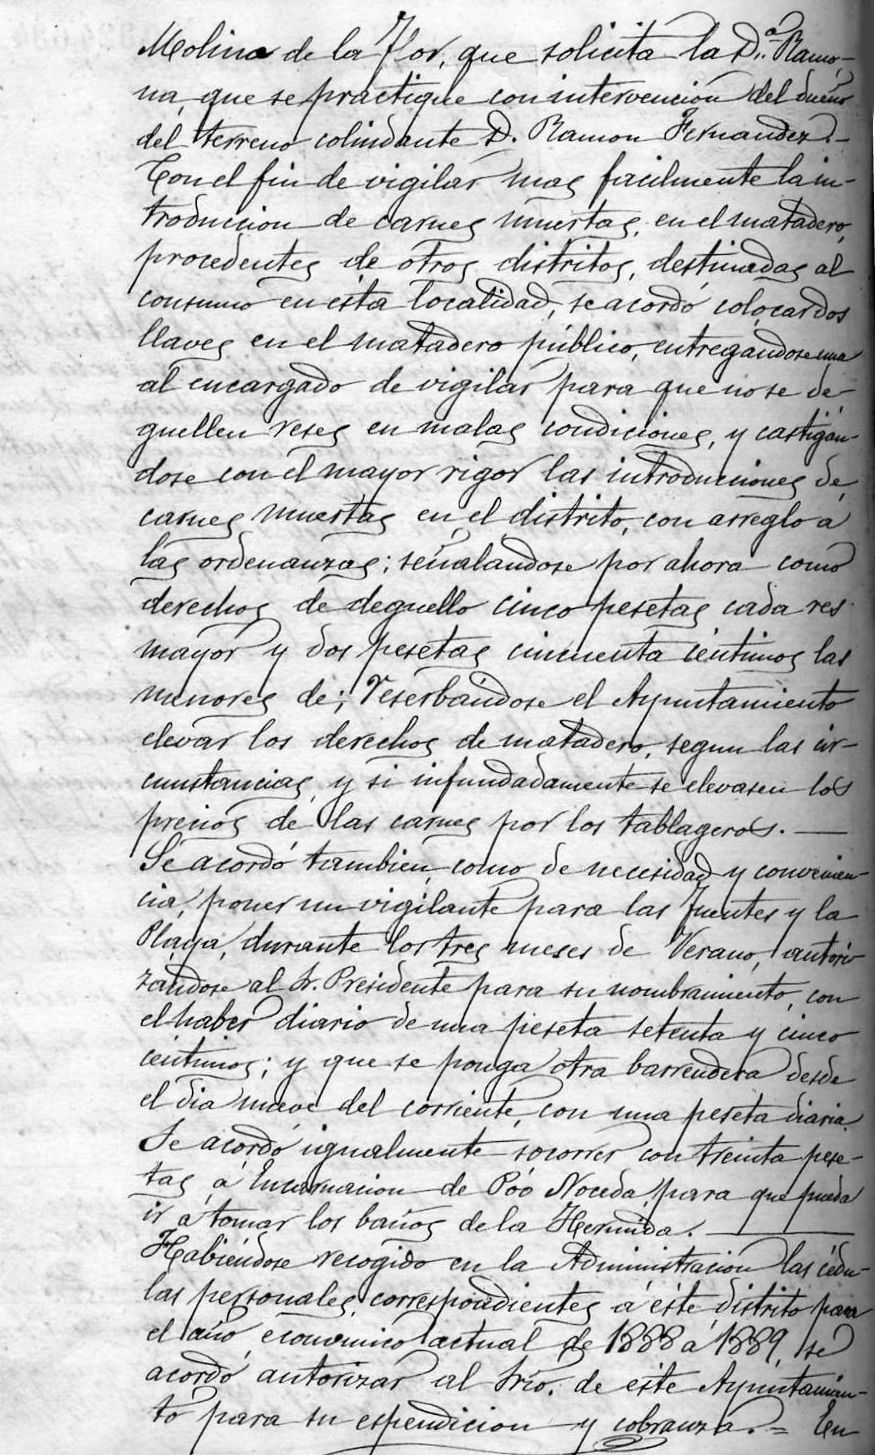 Molina de la Flor, que solicita la D.ª Ramo-
na, que se practique con intervencion del dueño
del terreno colindante D. Ramon Fernandez.—
Con el fin de vigilar mas facilmente la in-
troducion de carnes muertas, en el matadero,
procedentes de otros distritos, destinadas al
consumo en esta localidad, se acordó colocar dos
llaves en el matadero público, entregándose una
al encargado de vigilar para que no se de-
guellen reses en malas condiciones, y castigán-
dose con el mayor rigor las introduciones de
carnes muertas en el distrito, con arreglo á
las ordenanzas; señalandose por ahora como
derechos de deguello cinco pesetas cada res
mayor y dos pesetas cincuenta céntimos las
menores de; reserbándose el Ayuntamiento
elevar los derechos de matadero, segun las cir-
cunstancias, y si infundadamente se elevasen los
precios de las carnes por los tablageros. —
Se acordó tambien, como de necesidad y convenien-
cia, poner un vigilante para las fuentes y la
Playa, durante los tres meses de Verano, autori-
zándose al Sr. Presidente para su nombramiento, con
el haber diario de una peseta setenta y cinco
céntimos; y que se ponga otra barrendera desde
el dia nueve del corriente, con una peseta diaria.
Se acordó igualmente socorrer con treinta pese-
tas, á Encarnacion de Poó Noceda, para que pueda
ir á tomar los baños de la Hermida. —
Habiéndose recogido en la Administracion las cédu-
las personales, correspondientes á éste distrito para
el año económico actual de 1888 á 1889, se
acordó autorizar al Srio. de éste Ayuntamien-
to para su espendicion y cobranza. = En